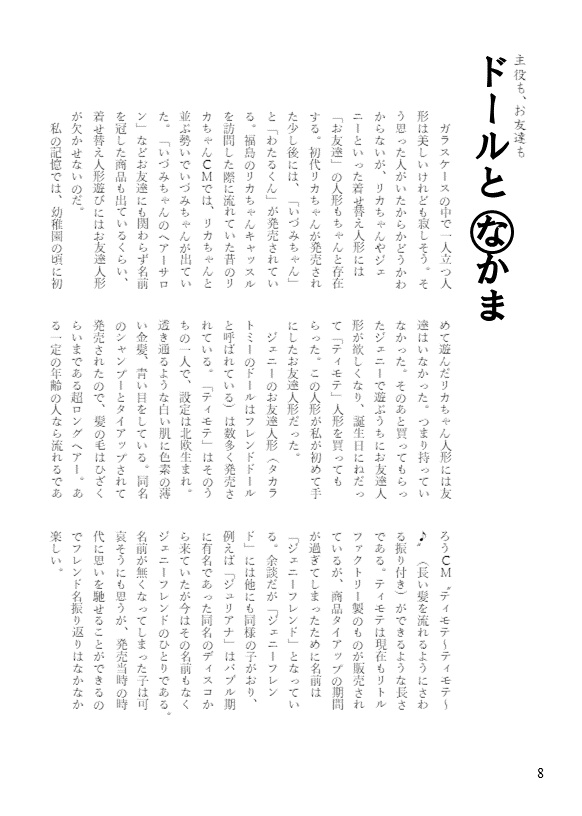 主役も、お友達も
ドールとなかま
ガラスケースの中で一人立つ人
形は美しいけれども寂しそう。そ
う思った人がいたからかどうかわ
からないが、リカちゃんやジェ
ニーといった着せ替え人形には
「お友達」の人形もちゃんと存在
する。初代リカちゃんが発売され
た少し後には、「いづみちゃん」
と「わたるくん」が発売されてい
る。福島のリカちゃんキャッスル
を訪問した際に流れていた昔のリ
カちゃんＣＭでは、リカちゃんと
並ぶ勢いでいづみちゃんが出てい
た。「いづみちゃんのヘアーサロ
ン」などお友達にも関わらず名前
を冠した商品も出ているくらい、
着せ替え人形遊びにはお友達人形
が欠かせないのだ。
私の記憶では、幼稚園の頃に初
めて遊んだリカちゃん人形には友
達はいなかった。つまり持ってい
なかった。そのあと買ってもらっ
たジェニーで遊ぶうちにお友達人
形が欲しくなり、誕生日にねだっ
て「ティモテ」人形を買っても
らった。この人形が私が初めて手
にしたお友達人形だった。
ジェニーのお友達人形（タカラ
トミーのドールはフレンドドール
と呼ばれている）は数多く発売さ
れている。「ティモテ」はそのう
ちの一人で、設定は北欧生まれ。
透き通るような白い肌に色素の薄
い金髪、青い目をしている。同名
のシャンプーとタイアップされて
発売されたので、髪の毛はひざく
らいまである超ロングヘアー。あ
る一定の年齢の人なら流れるであ
ろうＣＭ〝ティモテ～ティモテ～
♪〟（長い髪を流れるようにさわ
る振り付き）ができるような長さ
である。ティモテは現在もリトル
ファクトリー製のものが販売され
ているが、商品タイアップの期間
が過ぎてしまったために名前は
「ジェニーフレンド」となってい
る。余談だが「ジェニーフレン
ド」には他にも同様の子がおり、
例えば「ジュリアナ」はバブル期
に有名であった同名のディスコか
ら来ていたが今はその名前もなく
ジェニーフレンドのひとりである。
名前が無くなってしまった子は可
哀そうにも思うが、発売当時の時
代に思いを馳せることができるの
でフレンド名振り返りはなかなか
楽しい。
8